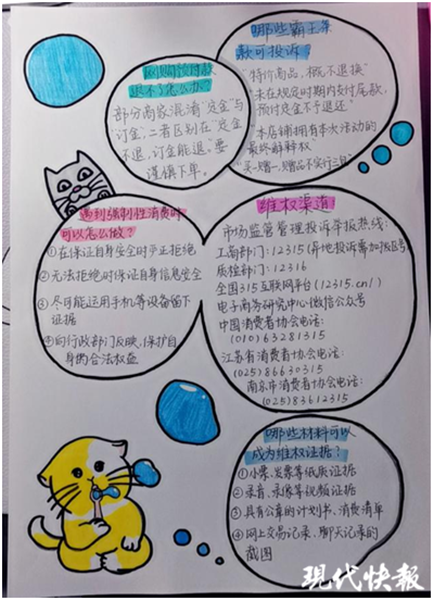 哪些霸王条
款可投诉?
"特价商品,概不退换"
"未在规定时期内支付尾款,
预付定金不予退还"
"本店铺拥有本次活动的
最终解释权"
"买一赠一,赠品不实行三包"
网购预付款
退不了怎么办?
部分商家混淆"定金"与
"订金",二者区别在"定金
不退,订金能退",要
谨慎下单。
遇到强制性消费时
可以怎么做?
①在保证自身安全时严正拒绝
②无法拒绝时保证自身信息安全
③尽可能运用手机等设备留下
证据
④向行政部门反映,保护自
身的合法权益
维权渠道
市场监督管理投诉举报热线:
工商部门:12315(异地投诉需加拨区号)
质检部门:12316
全国315互联网平台(12315.cn/)
电子商务研究中心微信公众号
中国消费者协会电话:
(010)63281315
江苏省消费者协会电话:
(025)86630315
南京市消费者协会电话:
(025)83612315
哪些材料可以
成为维权证据?
①小票、发票等纸质证据
②录音、录像等视频证据
③具有公章的计划书、消费清单
④网上交易记录、聊天记录的
截图
现代快报